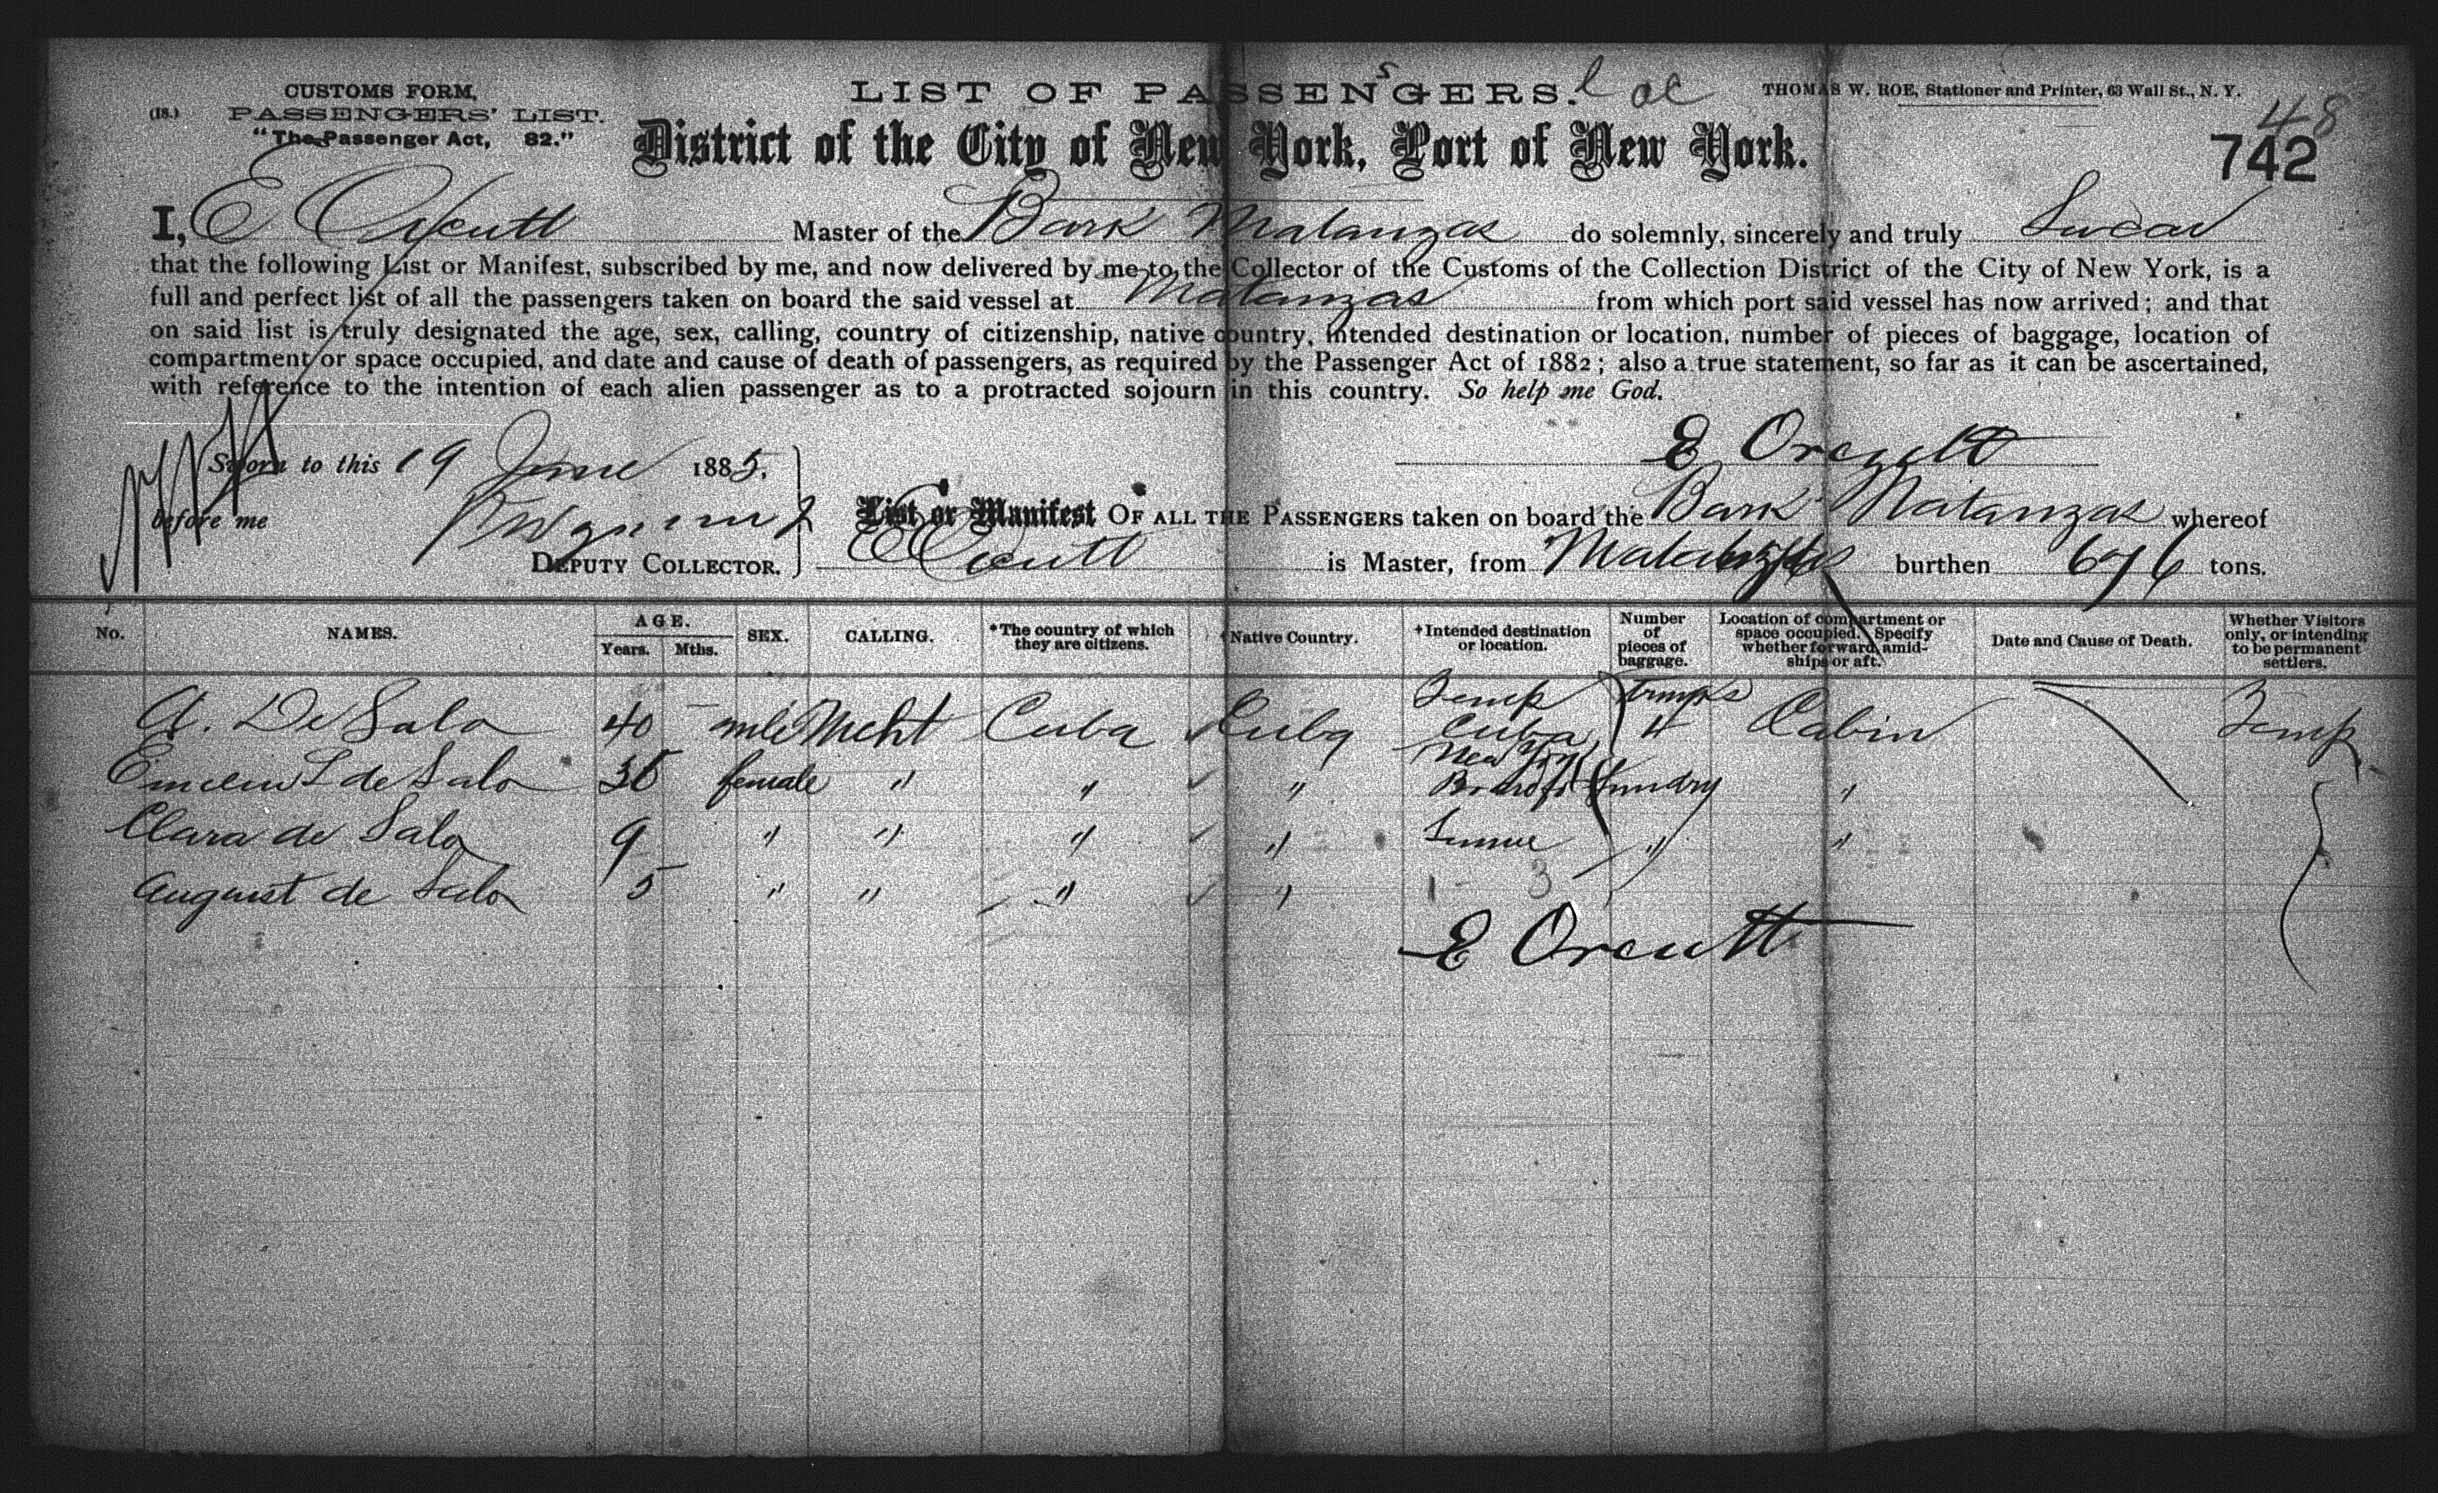 CUSTOMS FORM,
(18.) PASSENGERS' LIST.
"The Passenger Act, 82."
LIST OF PASSENGERS.
THOMAS W. ROE, Stationer and Printer, 63 Wall St., N. Y.
48
742
District of the City of New York, Port of New York.
I, E Orcutt Master of the Bark Matanzas do solemnly, sincerely and truly Swear
that the following List or Manifest, subscribed by me, and now delivered by me to the Collector of the Customs of the Collection District of the City of New York, is a
full and perfect list of all the passengers taken on board the said vessel at Matanzas from which port said vessel has now arrived; and that
on said list is truly designated the age, sex, calling, country of citizenship, native country, intended destination or location, number of pieces of baggage, location of
compartment or space occupied, and date and cause of death of passengers, as required by the Passenger Act of 1882; also a true statement, so far as it can be ascertained,
with reference to the intention of each alien passenger as to a protracted sojourn in this country. So help me God.
E Orcutt
Sworn to this 19 June 1885.
before me
DEPUTY COLLECTOR.
List or Manifest OF ALL THE PASSENGERS taken on board the Bark Matanzas whereof
E Orcutt is Master, from Matanzas burthen 676 tons.
No. NAMES. AGE. Years. Mths. SEX. CALLING. *The country of which they are citizens. *Native Country. *Intended destination or location. Number of pieces of baggage. Location of compartment or space occupied. Specify whether forward, amidships or aft. Date and Cause of Death. Whether Visitors only, or intending to be permanent settlers.
A. De Salo 40 male Mcht Cuba Cuba Temp Cuba trunks 4 Cabin Temp
de Salo female " " " New York sundry "
Clara de Salo 9 " " " " " "
August de Salo 5 " " " "
E Orcutt